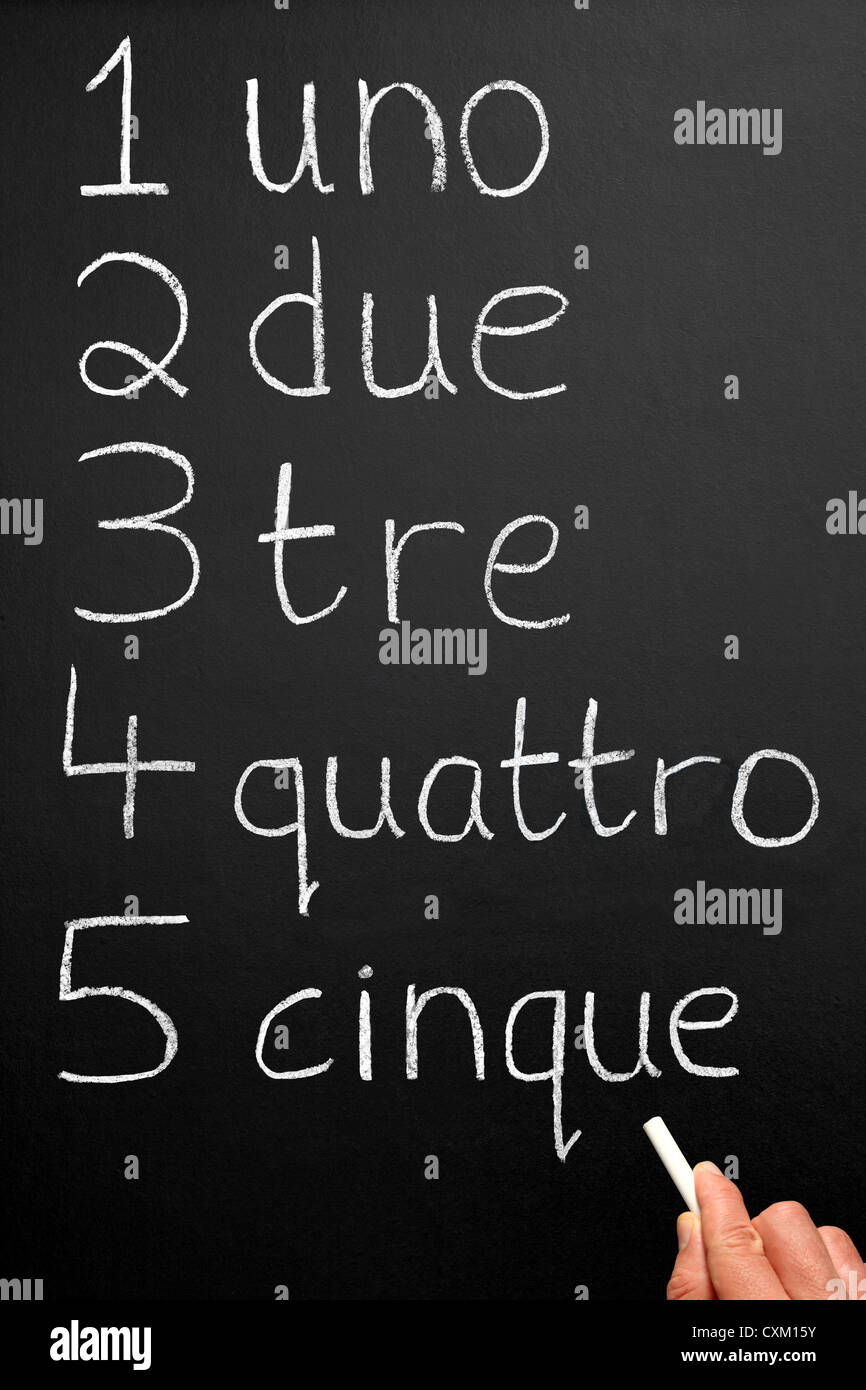 1 uno
2 due
3 tre
4 quattro
5 cinque
alamy
alamy
alamy
alamy
alamy
a
a
a
a
a
a
a
a
a
a
a
a
a
a
alamy
Image ID: CXM15Y
www.alamy.com